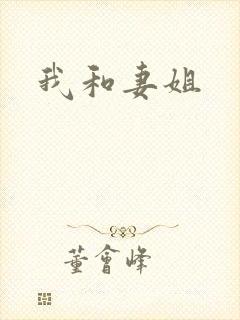 我和妻姐
董會峰